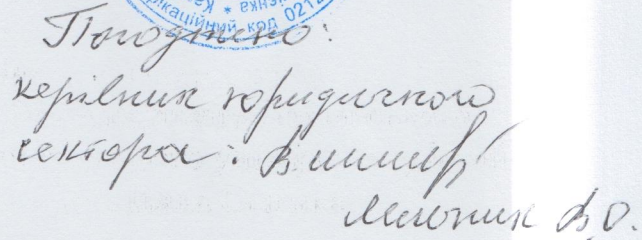 ікаційний код 0212
Погоджено:
керівник юридичного
сектора:
Мельник В.О.